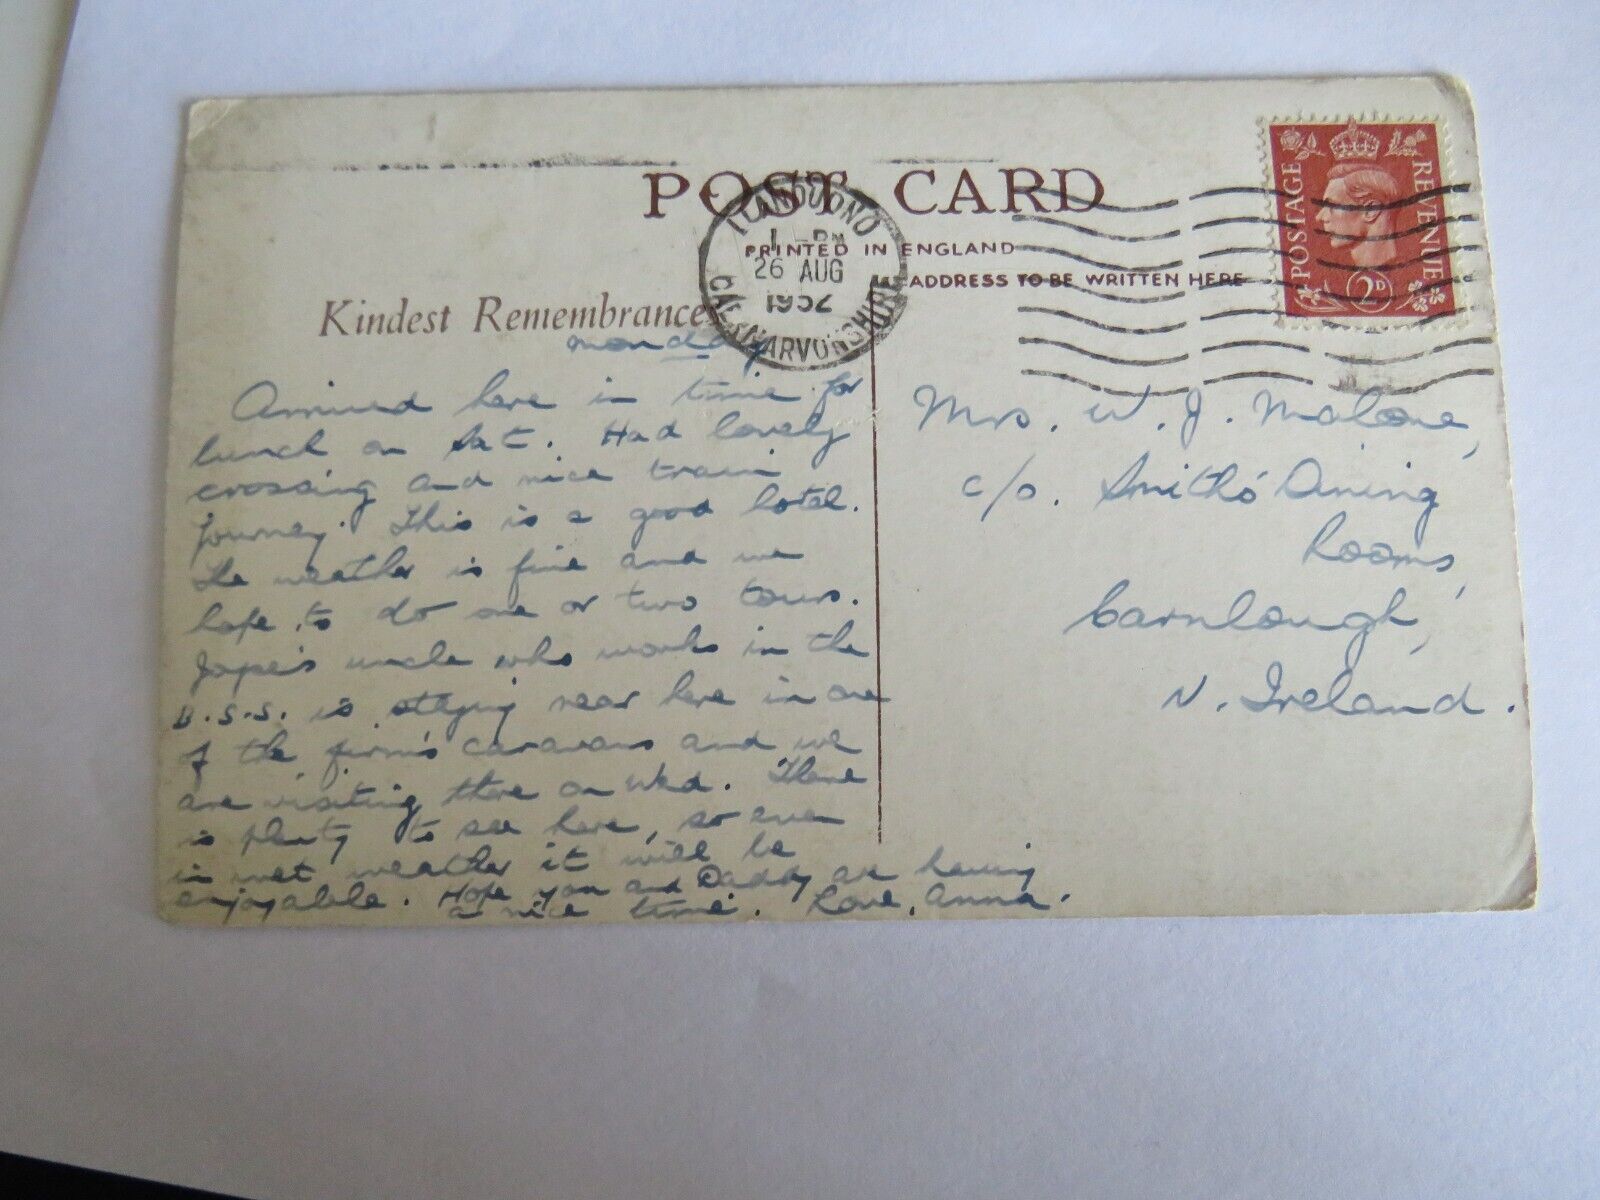 POST CARD
PRINTED IN ENGLAND
ADDRESS TO BE WRITTEN HERE
LLANDUDNO
1 - PM
26 AUG
1952
CAERNARVONSHIRE
POSTAGE
REVENUE
2D
Kindest Remembrance
Monday
Arrived here in time for
lunch on Sat. Had lovely
crossing and nice train
journey. This is a good hotel.
The weather is fine and we
hope to do one or two tours.
uncle who works in the
B.S.S. is staying near here in one
of the firm's caravans and we
are visiting there on Wed. There
is plenty to see here, so even
in wet weather it will be
enjoyable. Hope you and Daddy are having
a nice time. Love, Anna.
Mrs. W. J. Malone,
c/o. Smith's Dining
Rooms,
Carnlough,
N. Ireland.